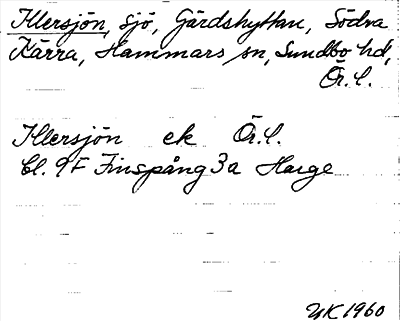 Illersjön, sjö, Gårdshyttan, Södra
Kärra, Hammars sn, Sundbo hd,
Ör. l.
Illersjön ek Ör. l.
bl. 9F Finspång 3a Harge
YK 1960